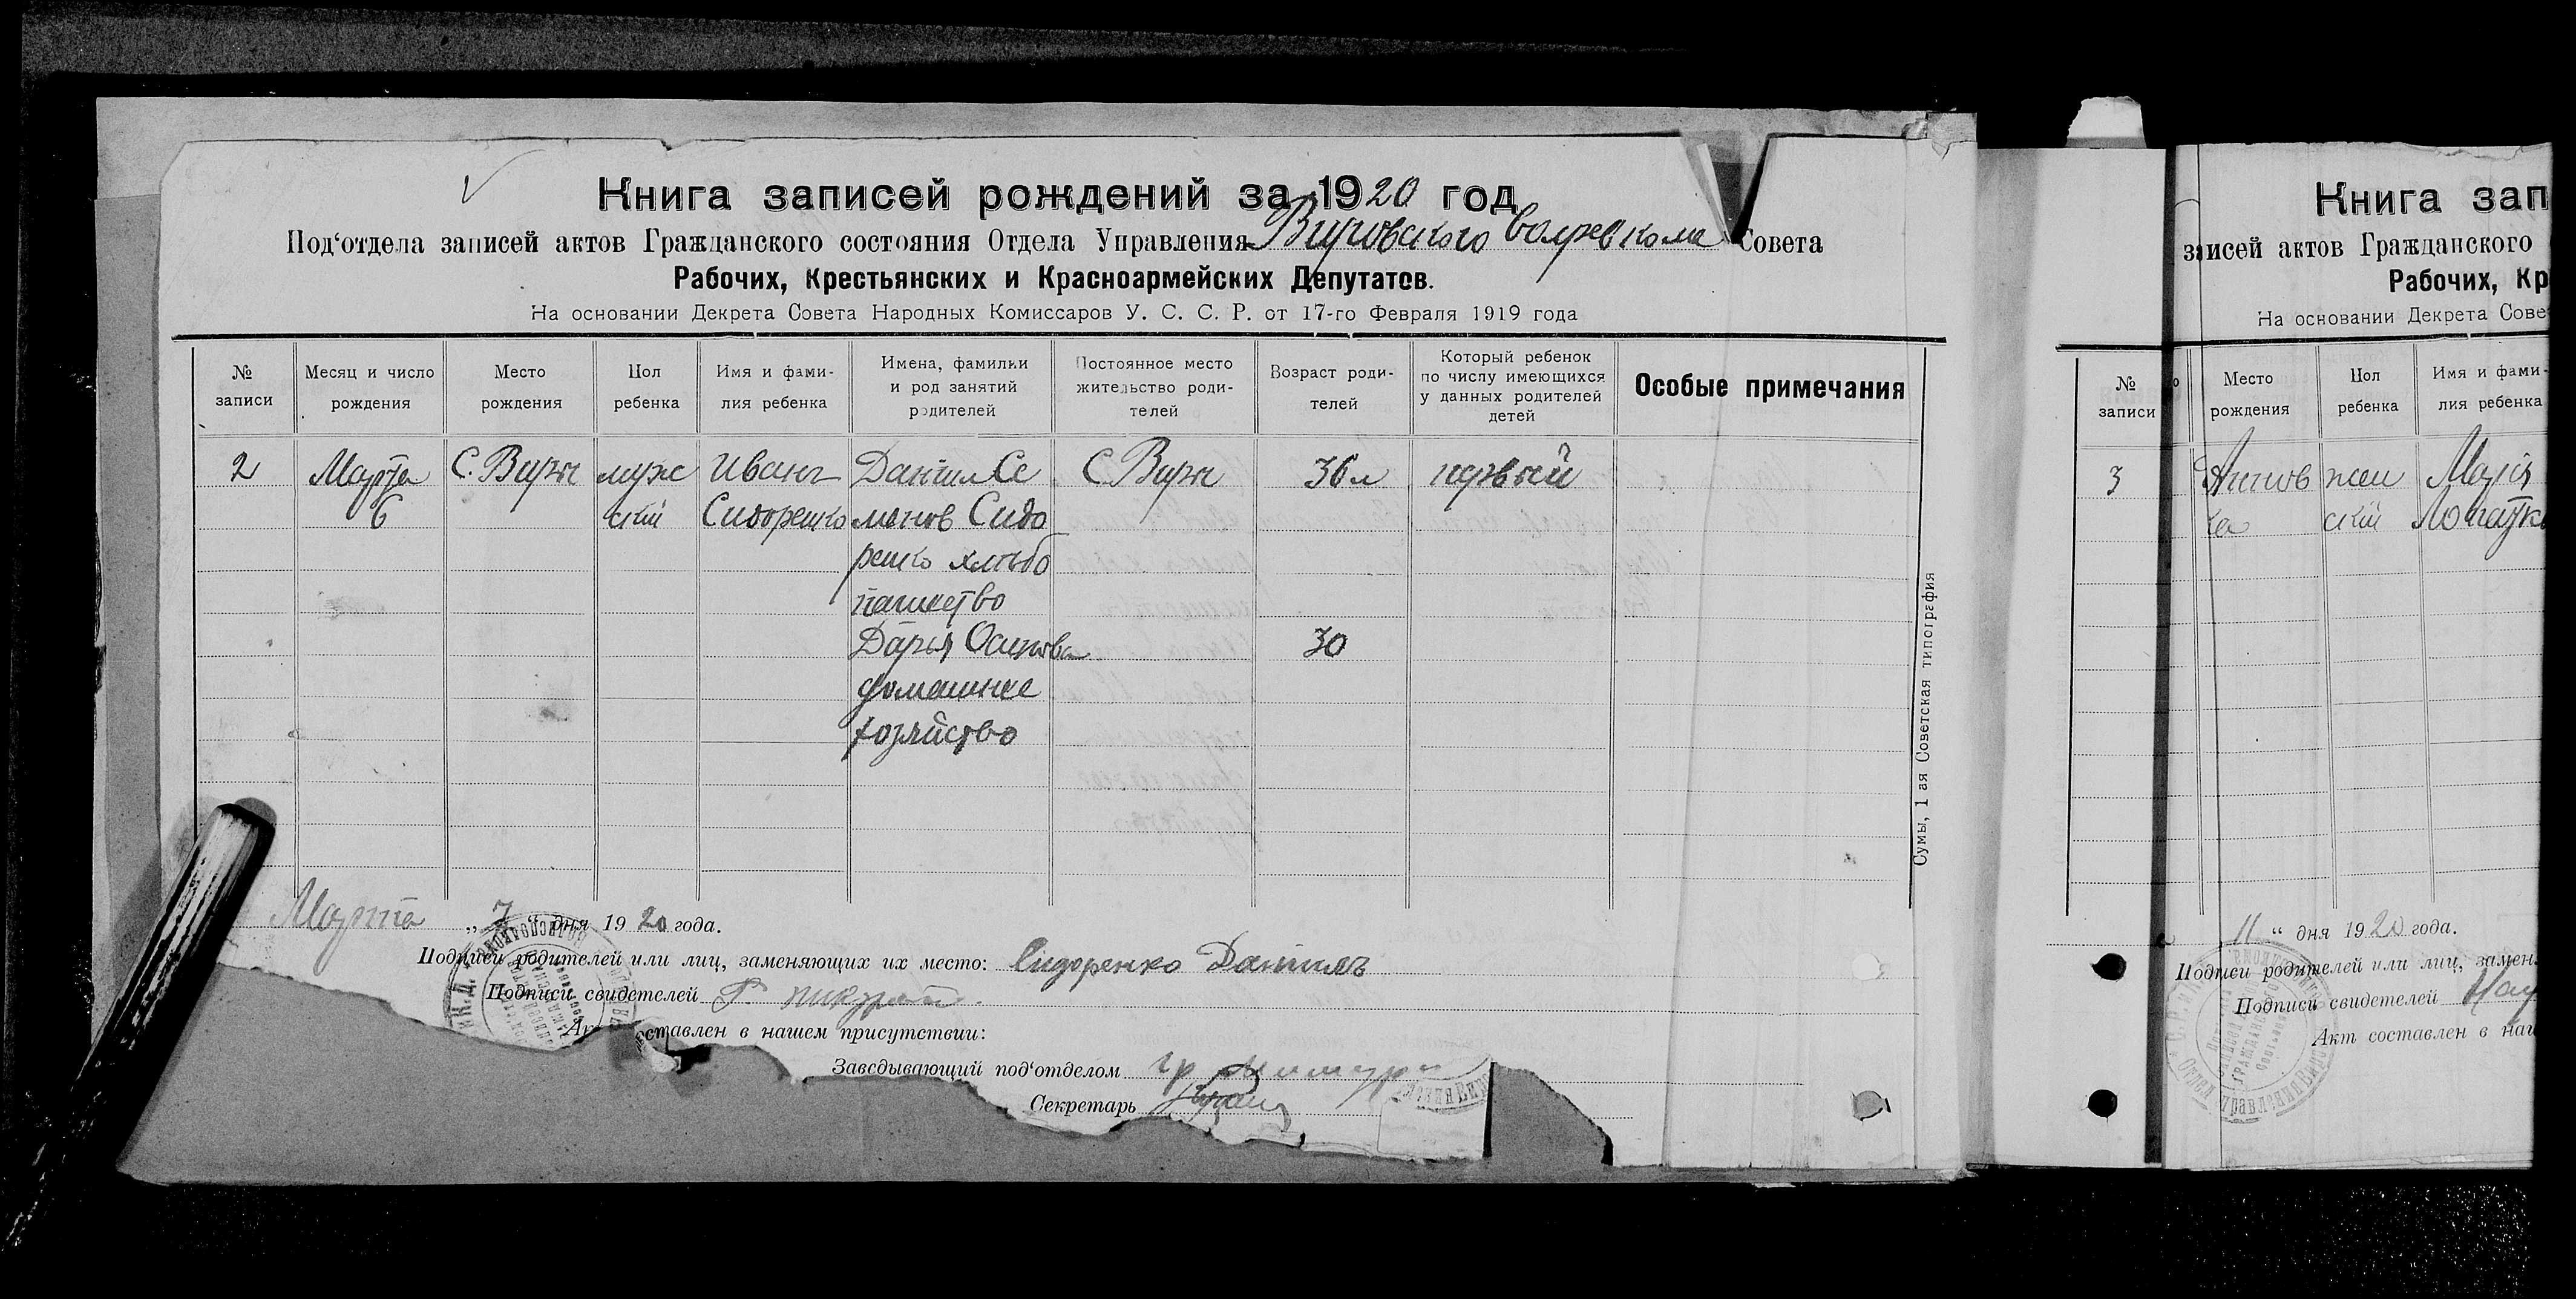 Книга записей рождений за 1920 год
Под‘отдела записей актов Гражданского состояния Отдела Управления Вируовского волревкома Совета
Рабочих, Крестьянских и Красноармейских Депутатов.
На основании Декрета Совета Народных Комиссаров У. С. С. Р. от 17-го Февраля 1919 года
№ записи
Месяц и число рождения
Место рождения
Пол ребенка
Имя и фами-
лия ребенка
Имена, фамилии
и род занятий
родителей
Постоянное место
жительство роди-
телей
Возраст роди-
телей
Который ребенок
по числу имеющихся
у данных родителей
детей
Особые примечания
2 Марта С. Виры муж Иванъ Данiил Се С. Виры 36 л первый
6 скiй Сидоренко менов Сидо
ренко хлѣбо
пашество
Дарья Осипова 30
домашнее
хозяйство
Марта „7“ дня 1920 года.
Подписи родителей или лиц, заменяющих их место: Сидоренко Данiилъ
Подписи свидетелей
Акт составлен в нашем присутствии:
Заведывающий под‘отделом
Секретарь
Сумы, 1 ая Советская типография
Книга зап
записей актов Гражданского
Рабочих, Кр
На основании Декрета Сове
№ записи
Место рождения
Пол ребенка
Имя и фами-
лия ребенка
3 Аннов жен Марiя
ка скiй
11 “ дня 1920 года.
Подписи родителей или лиц, замен
Подписи свидетелей
Акт составлен в наш